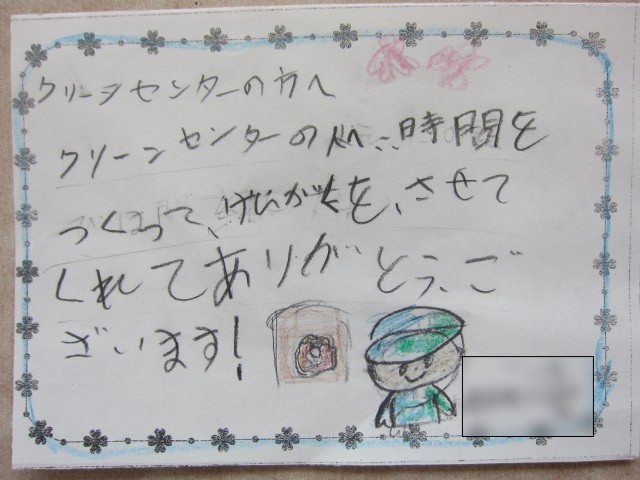 クリーンセンターの方へ
クリーンセンターの人へ、時間を
つくって、けんがくを、させて
くれてありがとう、ご
ざいます!